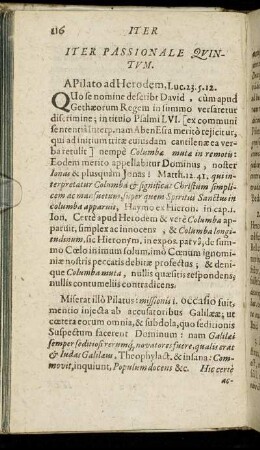 116 ITER
ITER PASSIONALE QVIN-
TVM.
A Pilato ad Herodem, Luc. 23. 5. 12.
QUo se nomine describit David, cùm apud
Gethæorum Regem in summo versaretur
discrimine; in titulo Psalmi LVI. [ex communi
sententiâ Interp. nam Aben Esra meritò rejicitur,
qui ad initium tritæ cujusdam cantilenæ ea ver-
ba retulit] nempè Columba muta in remotis:
Eodem meritò appellabitur Dominus, noster
Ionas & plusquàm Jonas: Matth. 12. 41. qui in-
terpretatur Columba & significat Christum simplici-
cem ac mansuetum, super quem Spiritus Sanctus in
columba apparuit, Haymo ex Hieron. in cap. 1.
Ion. Certè apud Herodem & verè Columba ap-
paruit, simplex ac innocens, & Columba longi-
tudinum, sic Hieronym. in expos. parvâ, de sum-
mo Cœlo in imum solum, imò Cœnum ignomi-
niæ nostris peccatis debitæ profectus; & deni-
que Columba muta, nullis quæsitis respondens,
nullis contumeliis contradicens.
Miserat illò Pilatus: missionis 1. OCCASIO fuit,
mentio injecta ab accusatoribus Galilææ, ut
cœtera eorum omnia, & subdola, quo seditionis
Suspectum facerent Dominum: nam Galilæi
semper seditiosi rerumq́, novatores fuere, qualis erat
& Iudas Galilæus, Theophylact. & insana: Com-
movit, inquiunt, Populum docens &c. Hic certè
ac-